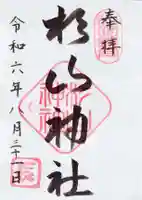 奉拝
杉山神社
令和六年八月三十一日